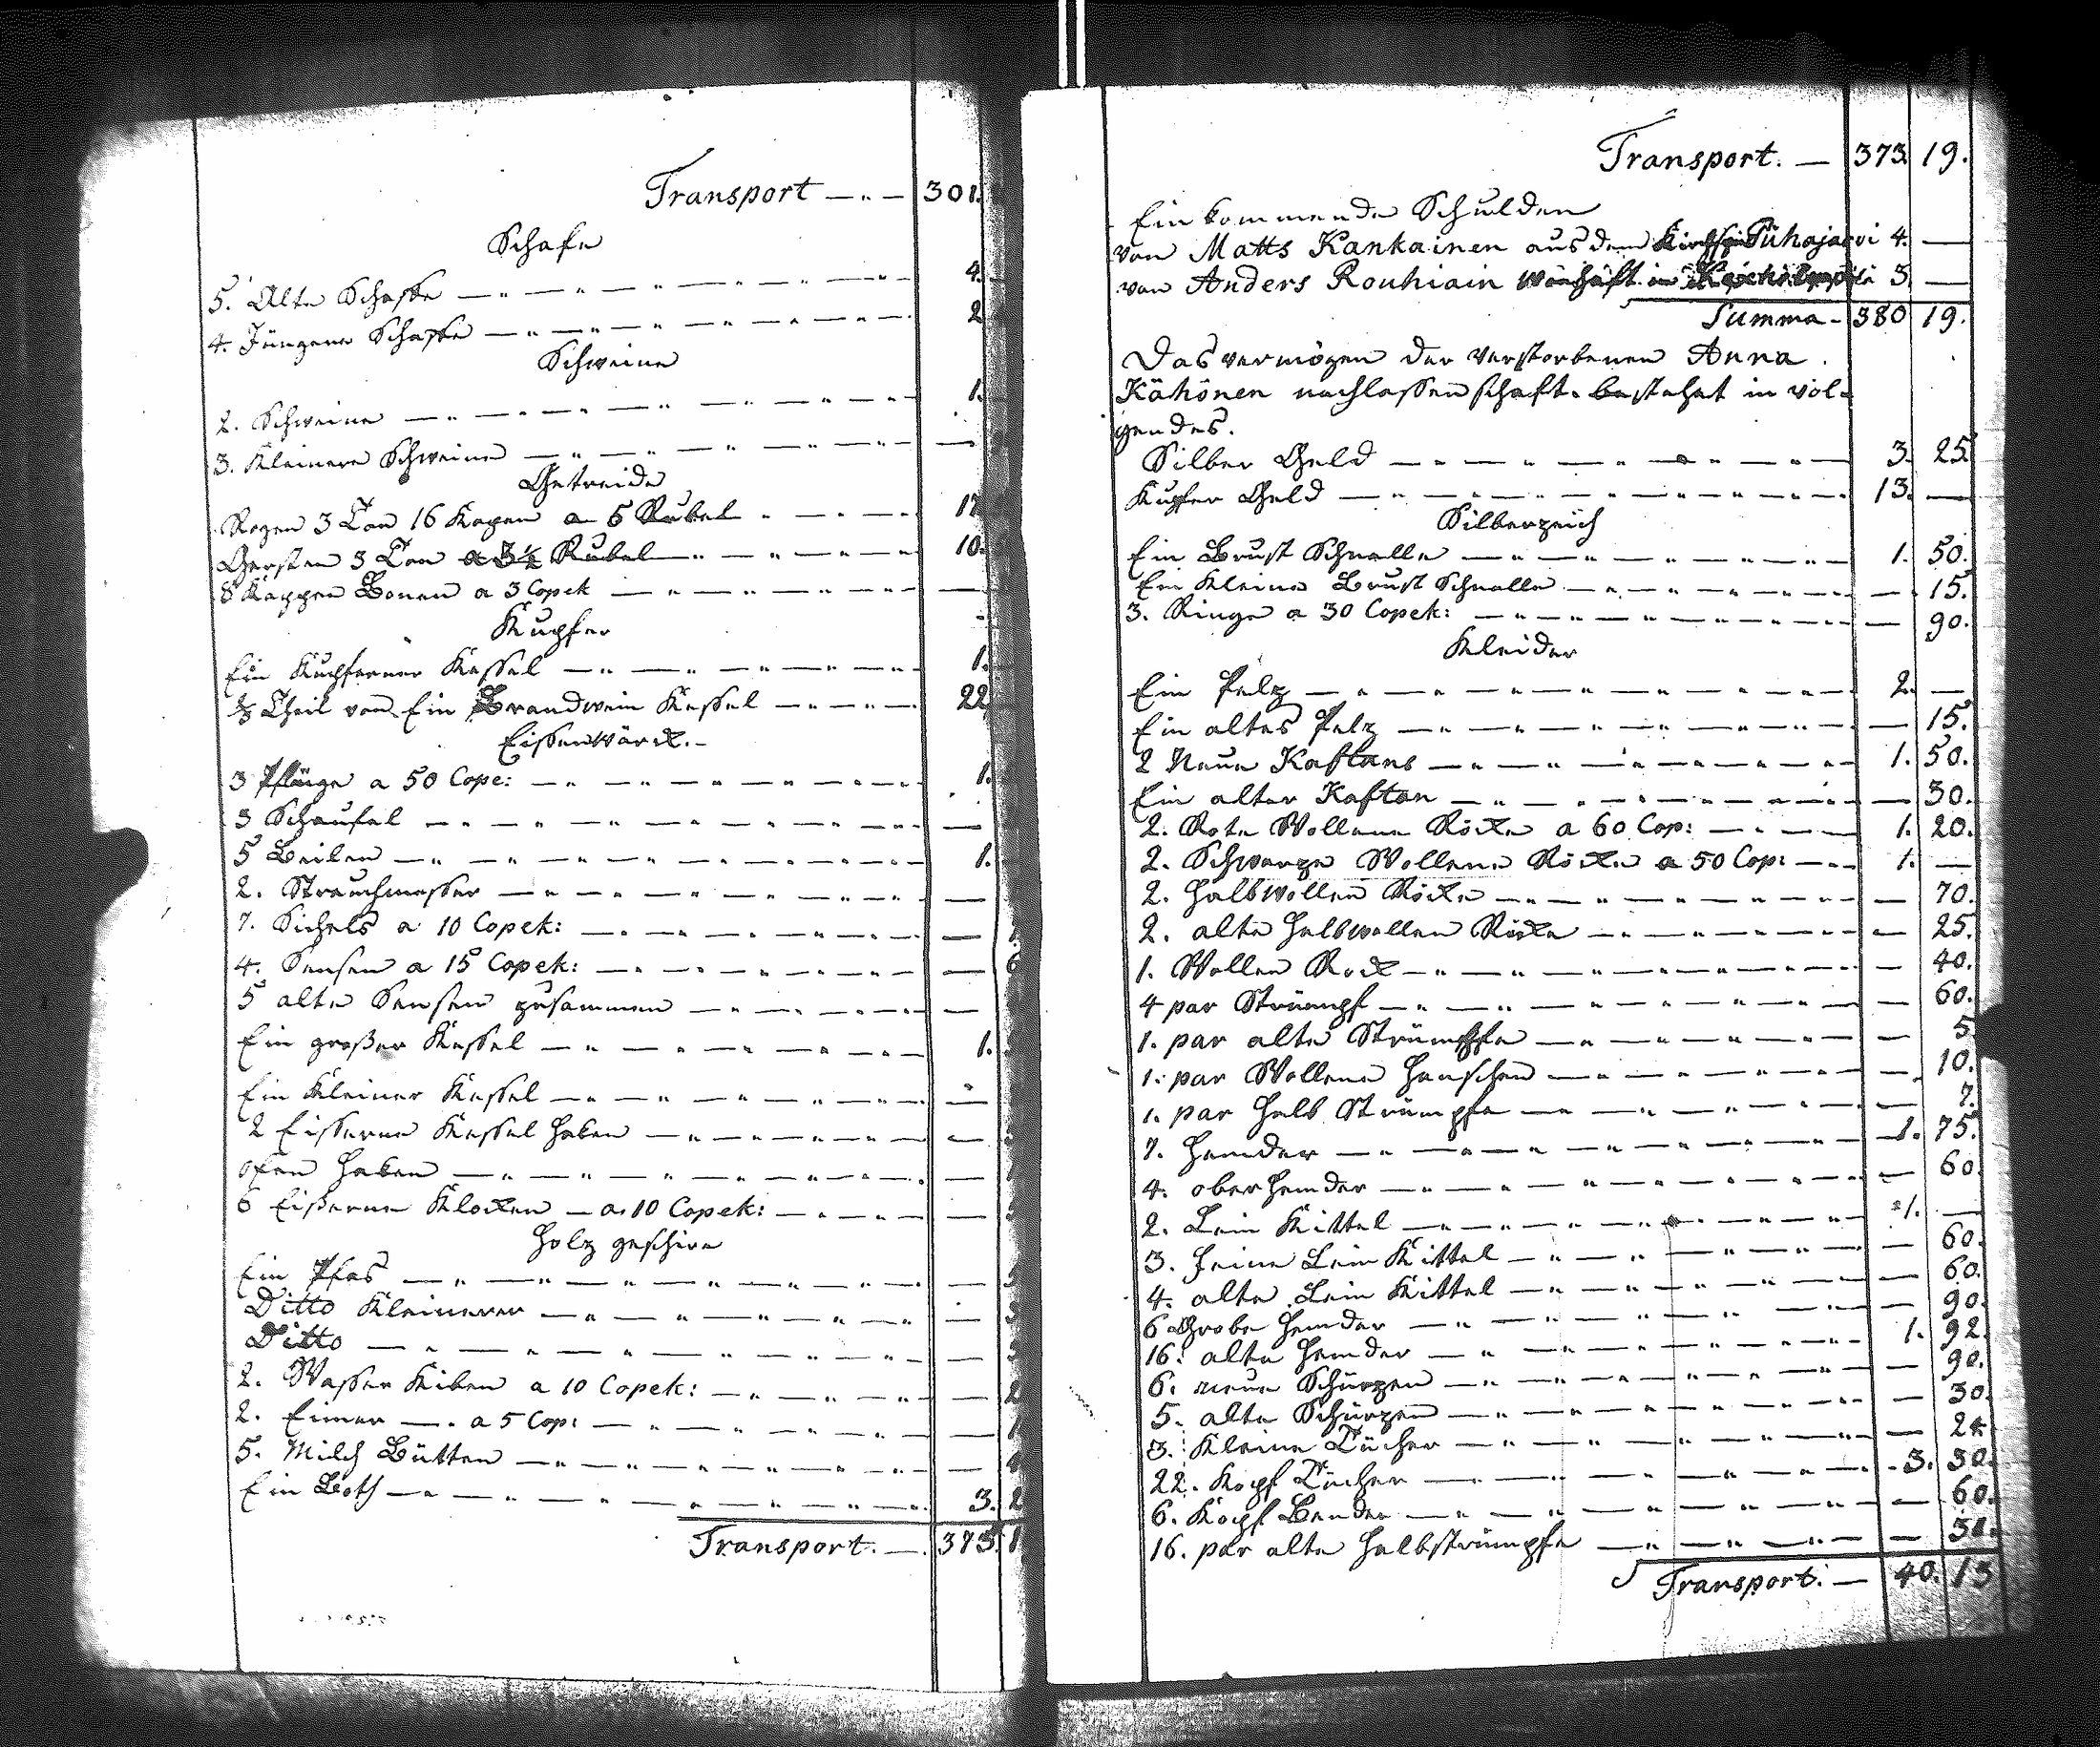 Transport — 301.
Schafe
5. Alte Schaffe — 4.
4. Jüngere Schaffe — 2
Schweine
2. Schweine — 1.
3. Kleinere Schweine —
Getreide
Rogen 3 Ton 16 Kapen a 5 Rubel — 17
Gersten 3 Ton a 3½ Rubel — 10.
8 Kappen Bonen a 3 Copek —
Kupfer
Ein Kupferner Kessel — 1.
Theil von Ein Brandwein Kessel — 22
Eissenwärck.
3 Pflüge a 50 Cope: — 1.
3 Schaufel —
5 Beilen — 1.
2. Strauchmesser —
7. Sichels a 10 Copek: —
4. Sensen a 15 Copek: — 6
5 alte Sensen zusammen —
Ein großer Kessel — 1.
Ein Kleiner Kessel —
2 Eisserne Kessel Haken —
ofen Haken —
6 Eißerne Klocken — a 10 Copek: —
Holz geschire
Ein Pfas —
Ditto Kleinerer —
Ditto —
2. Wasser Kiben a 10 Copek: — 2
2. Eimer — a 5 Cop: — 1
5. Milch Bütten —
Ein Both — 3. 2
Transport. — 373. 1
Transport. — 373. 19.
Ein kommende Schulden
von Matts Kankainen aus dem Pühajarvi 4. —
von Anders Rouhiain 3. —
Summa - 380 19.
Das vermögen der verstorbenen Anna
Kähönen nachlassenschaft bestehet in vol-
gendes.
Silber Geld — 3. 25.
Kupfer Geld — 13. —
Silberzeich
Ein Brust Schnalle — 1. 50.
Ein Kleine Brust Schnalle — 15.
3. Ringe a 30 Copek: — 90.
Kleider
Ein Pelz — 2. —
Ein altes Pelz — 15.
2 Neue Kaftans — 1. 50.
Ein alter Kaftan — 30.
2. Rote Wollene Röcke a 60 Cop: — 1. 20.
2. Schwarze Wollene Röcke a 50 Cop: — 1. —
2. Halbwollen Röcke — 70.
2. alte Halbwollen Röcke — 25.
1. Wollen Rock — 40.
4 par Strümpf — 60.
1. par alte Strümpffe — 5
1. par Wollene Hanschen — 10.
1. par Halb Strümpfe — 7.
7. Hemder — 1. 75.
4. ober Hemder — 60.
2. Lein Kittel — 1. —
3. feine Lein Kittel — 60.
4. alte Lein Kittel — 60.
6 Grobe Hemder — 90.
16. alte Hemder — 1. 92.
6. neue Schürzen — 90.
5. alte Schürzen — 30.
3. Kleine Tücher — 24
22. Kopf Tücher — 3. 30.
6. Kopf Bender — 60.
16. par alte Halbstrümpfe —
Transport. — 40. 13